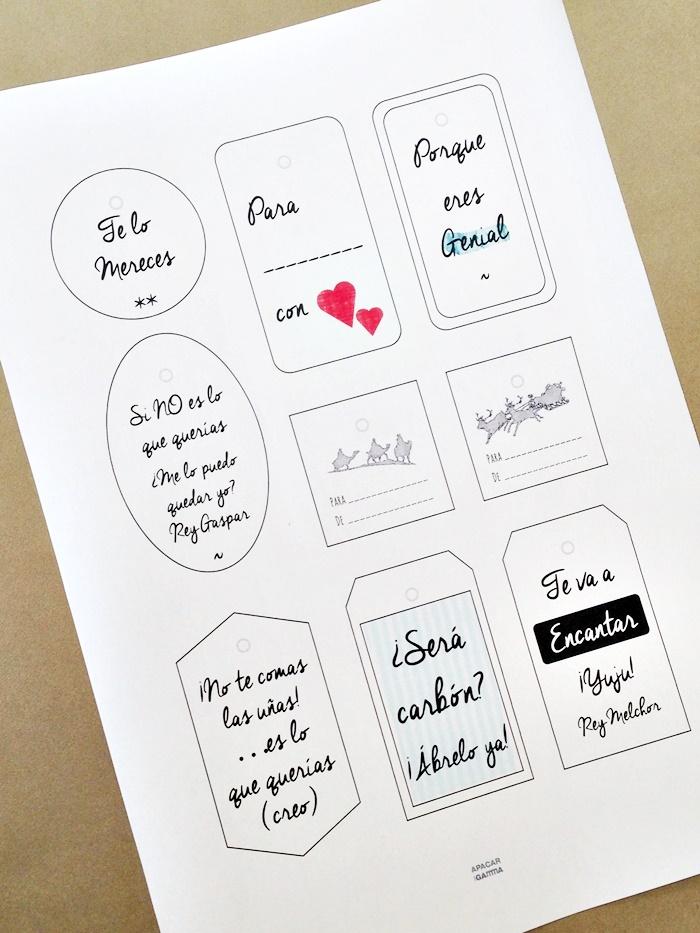 Te lo
Mereces
**
Para
con
Porque
eres
Genial
~
Si NO es lo
que querías
¿Me lo puedo
quedar yo?
Rey Gaspar
~
PARA
DE
PARA
DE
¡No te comas
las uñas!
...es lo
que querías
(creo)
¿Será
carbón?
¡Ábrelo ya!
Te va a
Encantar
¡Yuju!
Rey Melchor
APACAR
GAMMA